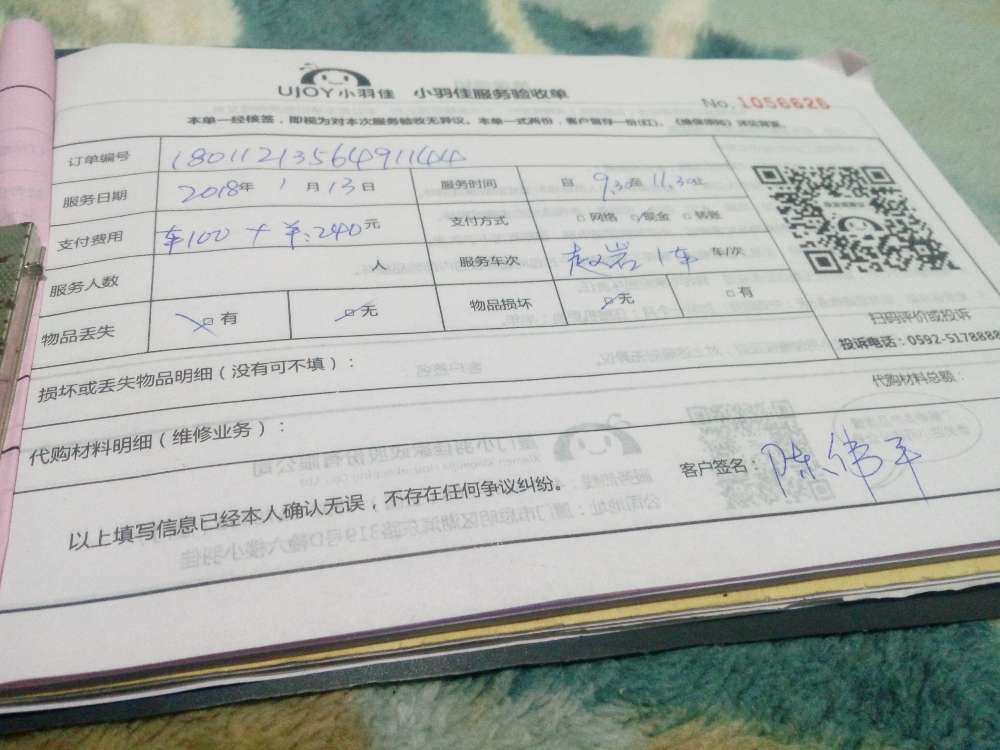 UJOY小羽佳 小羽佳服务验收单
No.1056626
本单一经核签，即视为对本次服务验收无异议。本单一式两份，客户留存一份(红)。《维保须知》详见背面。
订单编号 18011213564911444
服务日期 2018年1月13日 服务时间 自9.30至11.30止
支付费用 车100+羊:240元 支付方式 网络 现金 转账
服务人数 人 服务车次 赵岩1车 车/次
物品丢失 有 无 物品损坏 无 有
扫码评价或投诉
投诉电话：0592-5178888
损坏或丢失物品明细（没有可不填）：
代购材料明细（维修业务）： 代购材料总额：
以上填写信息已经本人确认无误，不存在任何争议纠纷。 客户签名：陈伟平